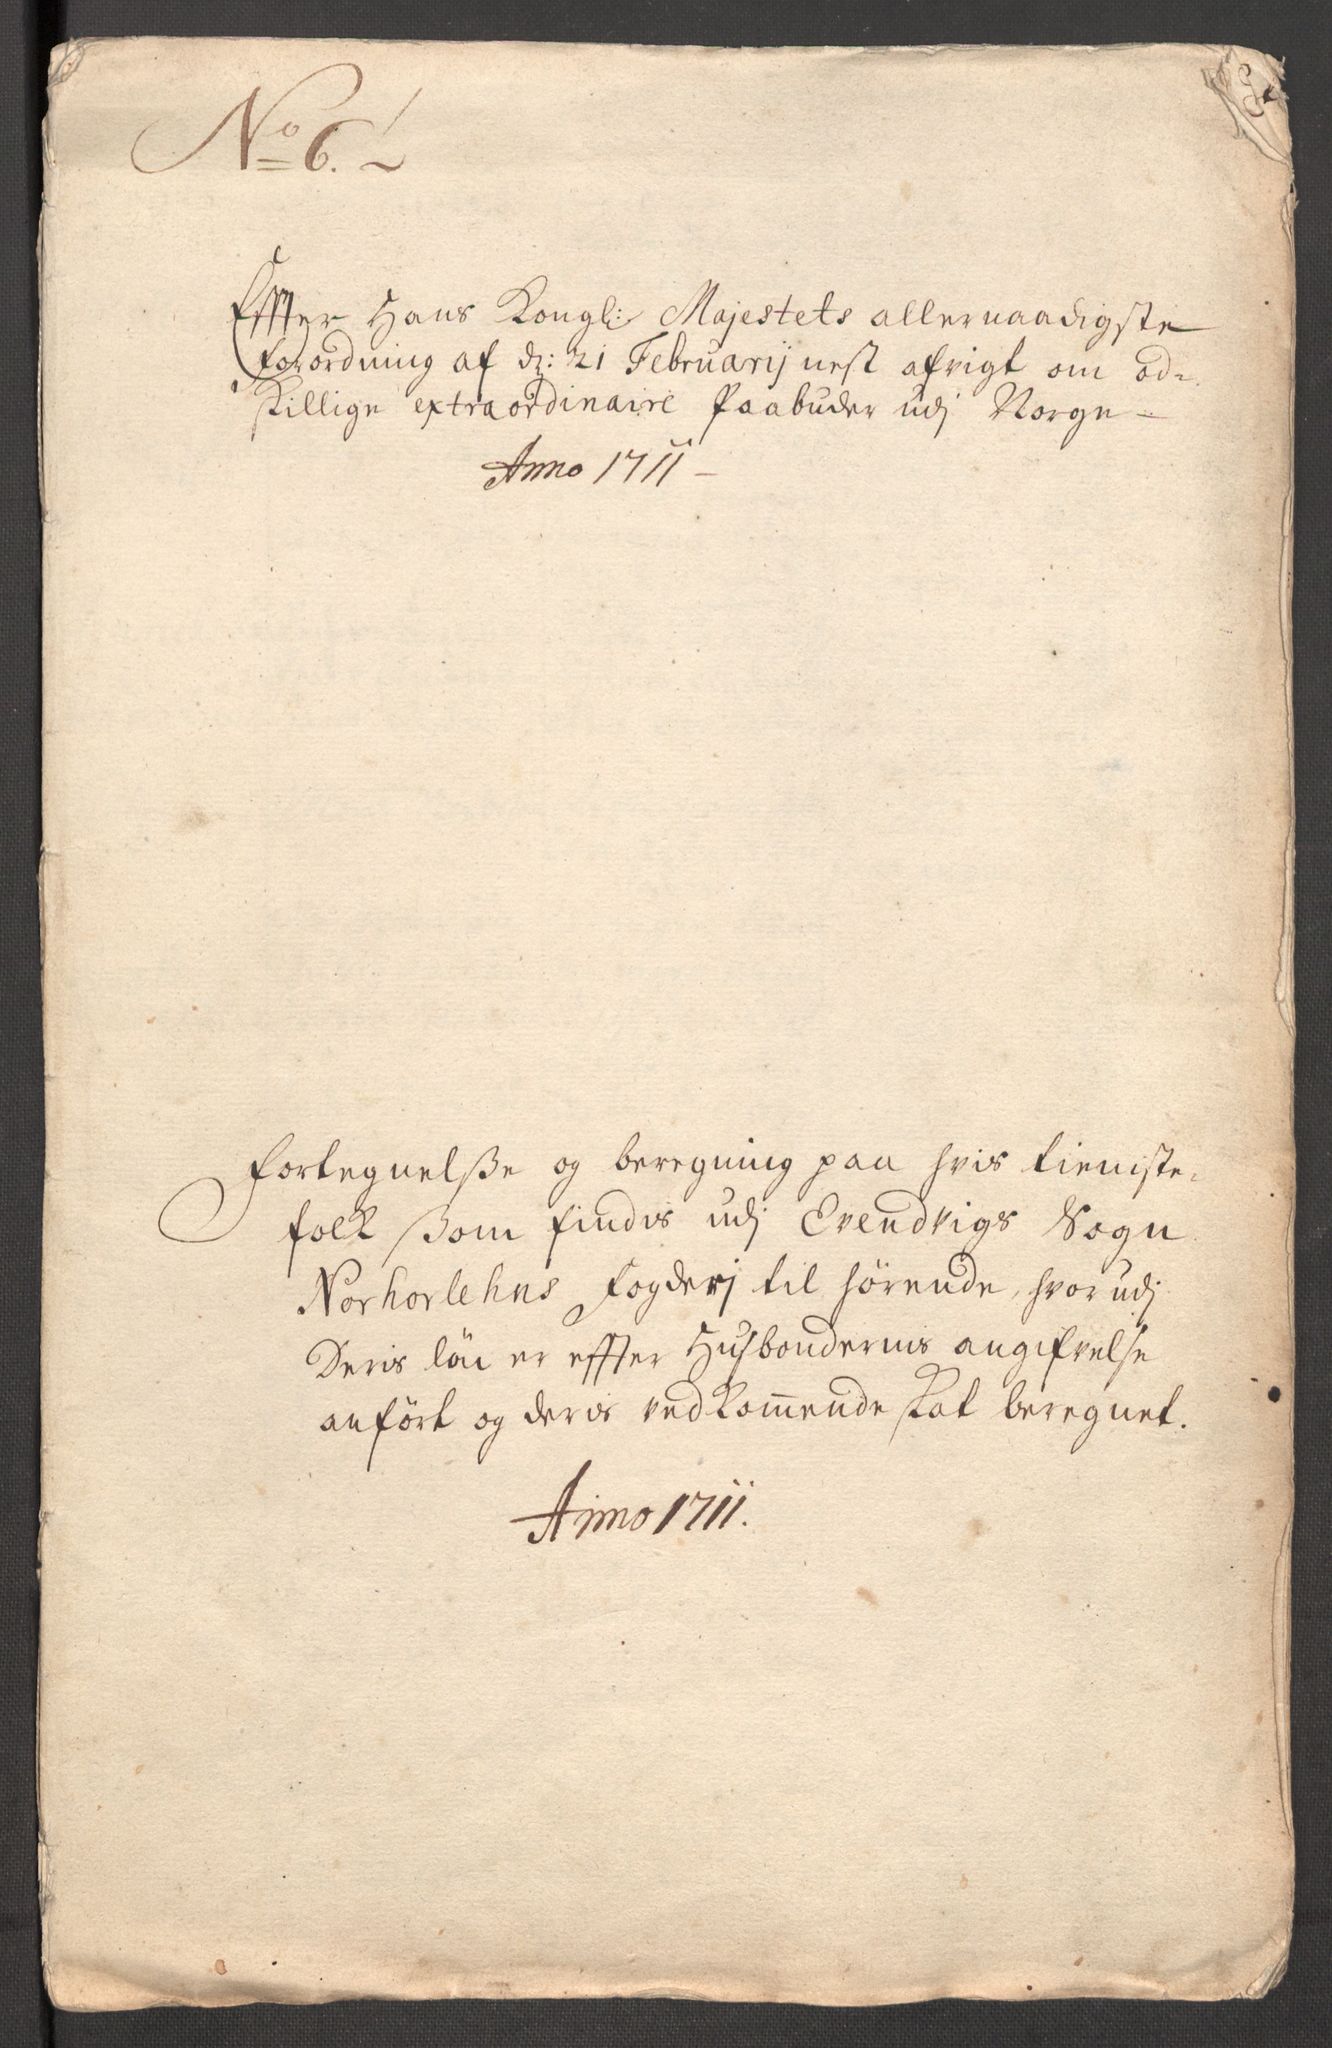 No 6.
Effter Hans Kongl: Majestets allernaadigste
forordning af d: 21 Februarij nest afvigt om ad=
skillige extraordinaire Paabuder udj Norge
Anno 1711
Fortegnelsse og beregning paa hvis tieniste-
folk som findis udj Evendvigs Sogn
Norhorlehns Fogderj til hørende, hvorudj
Deris lön er effter Husbondernis angifvelse
anført og deris vedkommende skat beregnet.
Anno 1711.